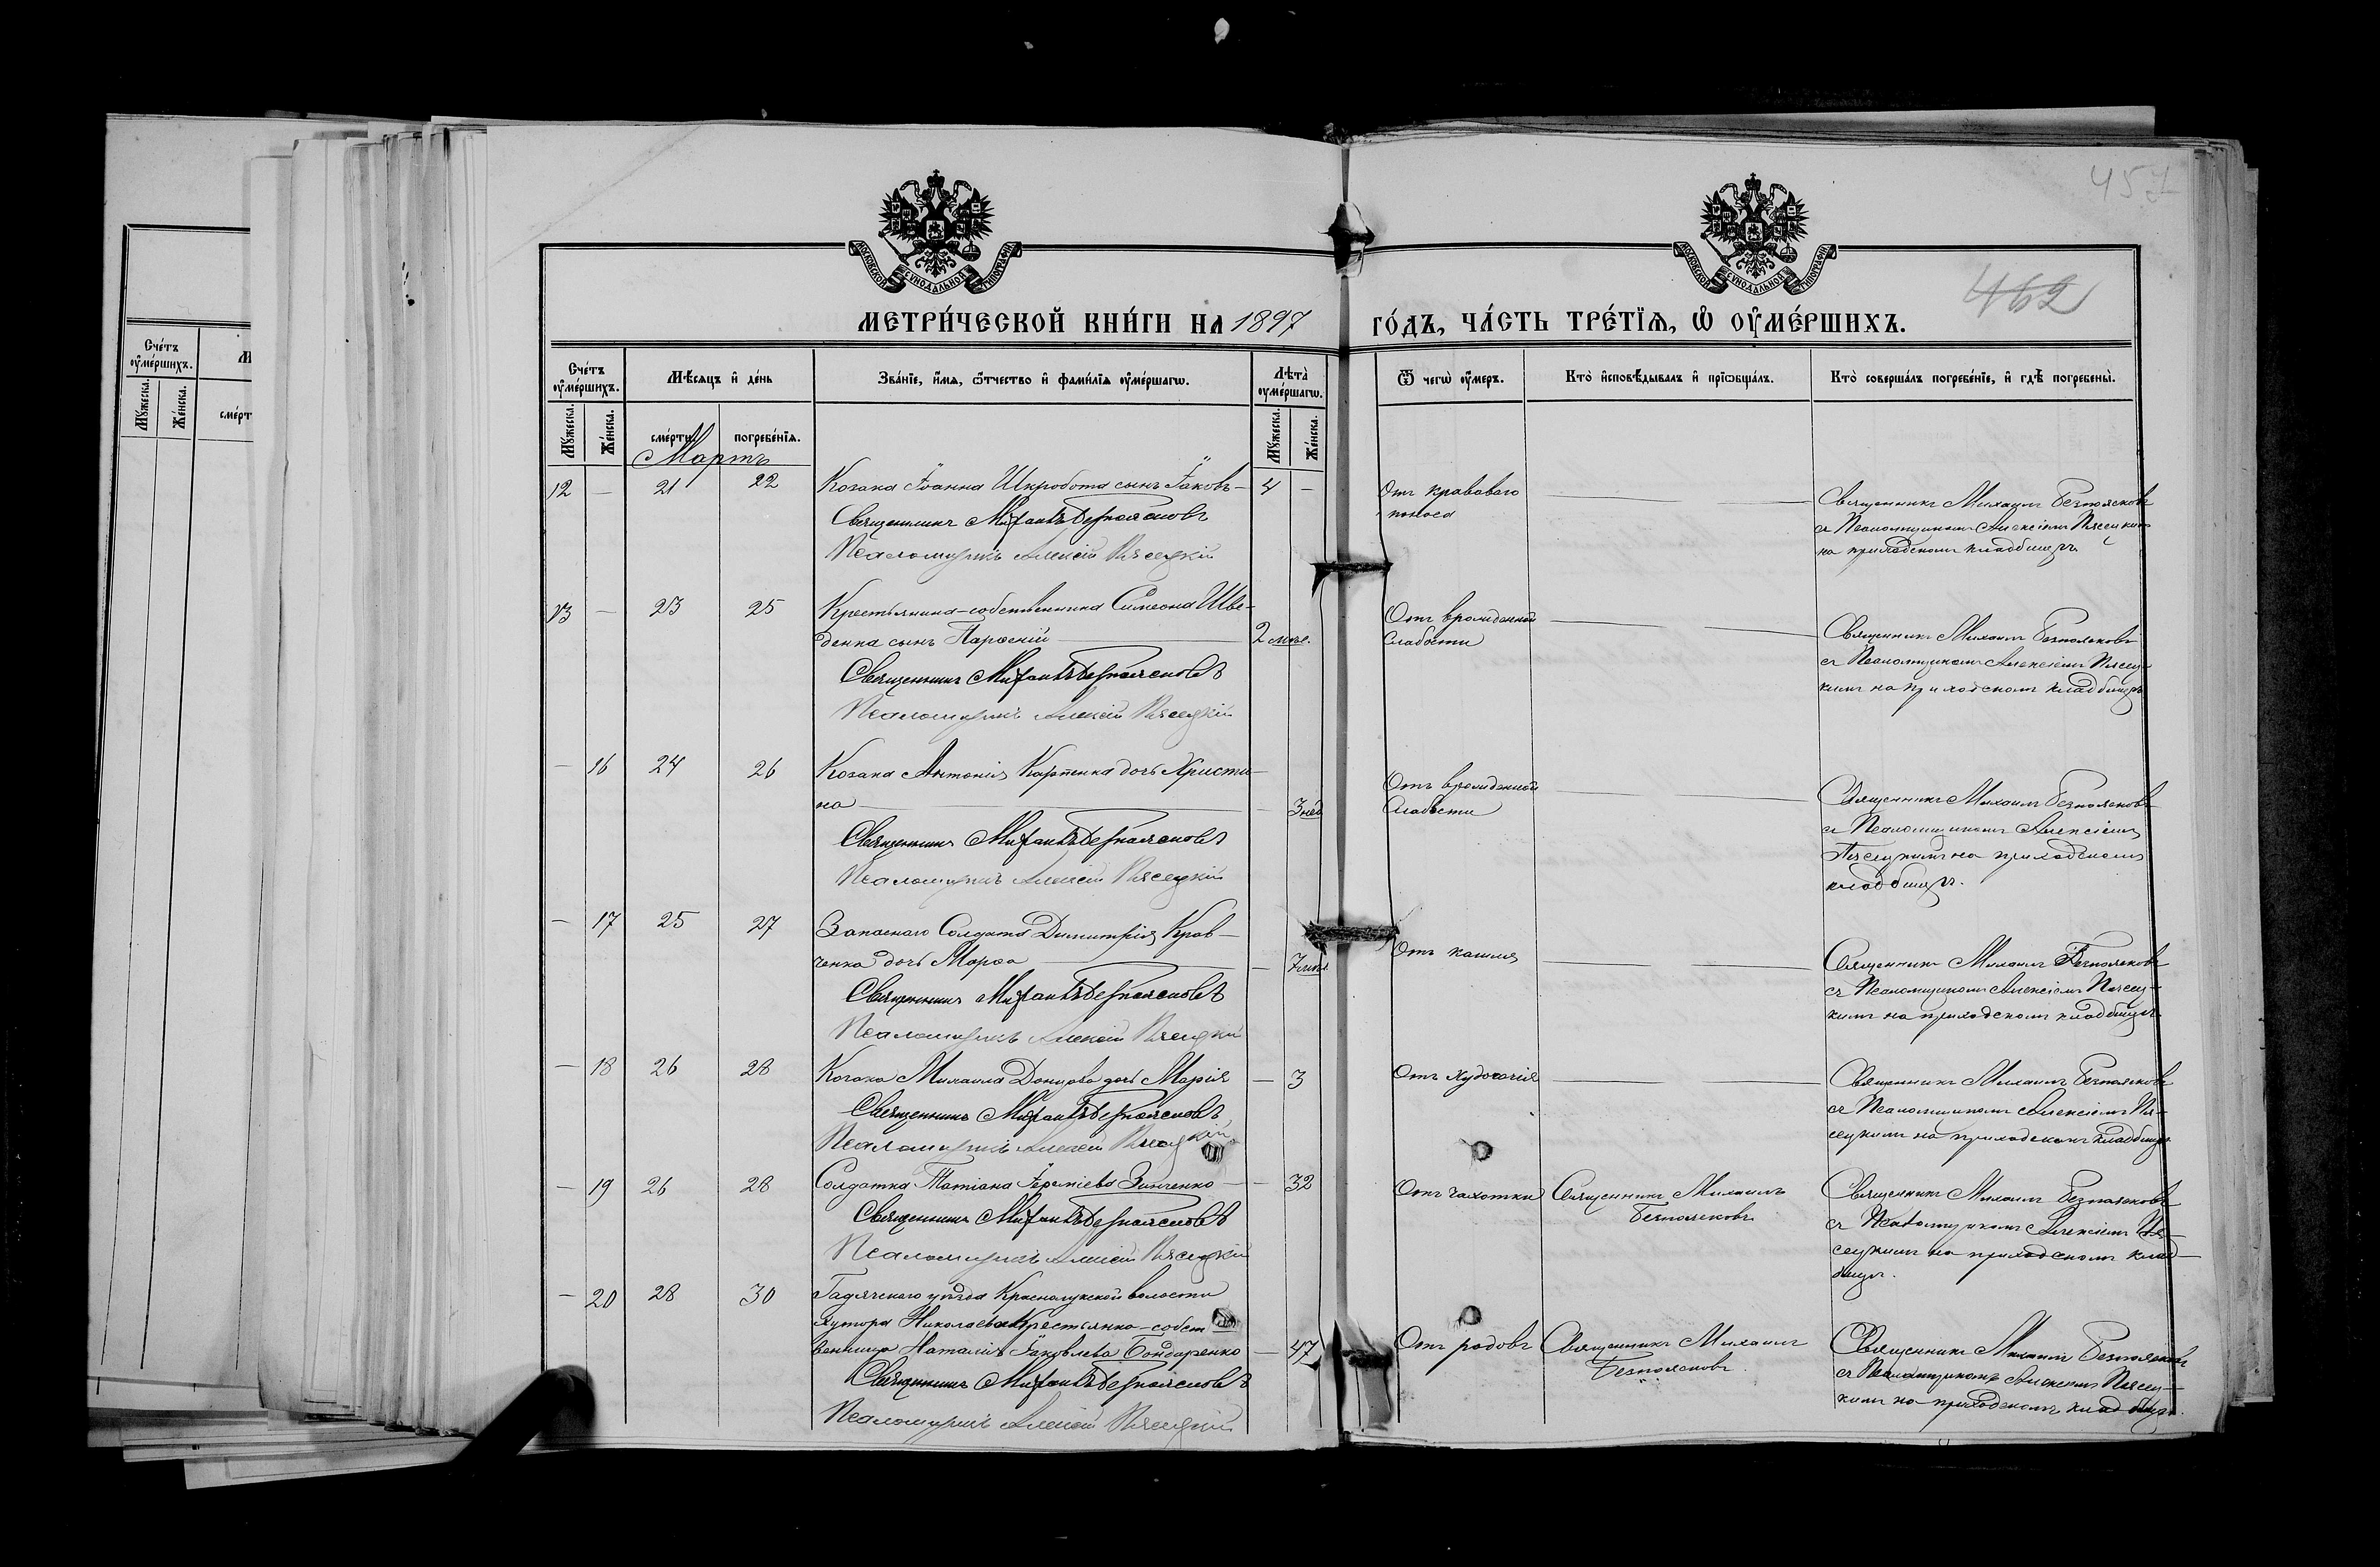 457
462
МОСКОВСКОЙ СѴНОДАЛЬНОЙ ТИПОГРАФІИ
МОСКОВСКОЙ СѴНОДАЛЬНОЙ ТИПОГРАФІИ
МЕТРИ́ЧЕСКОЙ КНИ́ГИ НА 1897 ГО́ДЪ, ЧА́СТЬ ТРЕ́ТІѦ, Ѽ ОУ҆МЕ́РШИХЪ.
Сче́тъ оу҆ме́ршихъ.
Мѣ́сѧцъ и҆ де́нь
Зва́нїе, и҆́мѧ, ѻ҆́тчество и҆ фами́лїѧ оу҆ме́ршагѡ.
Лѣ́та̀ оу҆ме́ршагѡ.
Ѿ чегѡ̀ оу҆́меръ.
Кто̀ и҆сповѣ́дывалъ и҆ прїѡбща́лъ.
Кто̀ соверша́лъ погребе́нїе, и҆ гдѣ̀ погребены̀.
Мꙋ́жеска.
Же́нска.
сме́рти.
погребе́нїѧ.
Мꙋ́жеска.
Же́нска.
Мартъ
12 — 21 22 Козака Іоанна Шкробота сынъ Іаковъ — 4 —
Священникъ Михаилъ Безпоясковъ
Псаломщикъ Алексій Пясецкій
Отъ крававаго
поноса
Священникъ Михаилъ Безпоясковъ
съ Псаломщикомъ Алексіемъ Пясецкимъ
на приходскомъ кладбищѣ
13 — 23 25 Крестьянина-собственника Симеона Шве-
денка сынъ Парѳеній 2 мѣс.
Священникъ Михаилъ Безпоясковъ
Псаломщикъ Алексій Пясецкій
Отъ врожденной
слабости
Священникъ Михаилъ Безпоясковъ
съ Псаломщикомъ Алексіемъ Пясец-
кимъ на приходскомъ кладбищѣ
— 16 24 26 Козака Антонія Карпенка дочь Христи-
на — 3 нед
Священникъ Михаилъ Безпоясковъ
Псаломщикъ Алексій Пясецкій
Отъ врожденной
слабости
Священникъ Михаилъ Безпоясковъ
съ Псаломщикомъ Алексіемъ
Пясецкимъ на приходскомъ
кладбищѣ.
— 17 25 27 Запаснаго Солдата Димитрія Крав-
ченка дочь Марѳа — 7 мѣс
Священникъ Михаилъ Безпоясковъ
Псаломщикъ Алексій Пясецкій
Отъ кашля
Священникъ Михаилъ Безпоясковъ
съ Псаломщикомъ Алексіемъ Пясец-
кимъ на приходскомъ кладбищѣ
— 18 26 28 Козака Михаила Донцова дочь Марія — 3
Священникъ Михаилъ Безпоясковъ
Псаломщикъ Алексій Пясецкій
Отъ худосочія
Священникъ Михаилъ Безпоясковъ
съ Псаломщикомъ Алексіемъ Пя-
сецкимъ на приходскомъ кладбищѣ
— 19 26 28 Солдатка Татіана Іереміева Зинченко — 32
Священникъ Михаилъ Безпоясковъ
Псаломщикъ Алексій Пясецкій
Отъ чахотки
Священникъ Михаилъ
Безпоясковъ
Священникъ Михаилъ Безпоясковъ
съ Псаломщикомъ Алексіемъ Пя-
сецкимъ на приходскомъ клад-
бищѣ.
— 20 28 30 Гадячскаго уѣзда Краснолукской волости
хутора Николаевка Крестьянка-собст
венница Наталія Іаковлева Бондаренко — 47
Священникъ Михаилъ Безпоясковъ
Псаломщикъ Алексій Пясецкій
Отъ родовъ
Священникъ Михаилъ
Безпоясковъ.
Священникъ Михаилъ Безпоясковъ
съ Псаломщикомъ Алексіемъ Пясец-
кимъ на приходскомъ кладбищѣ.
Сче́тъ оу҆ме́ршихъ.
Мꙋ́жеска.
Же́нска.
сме́рт